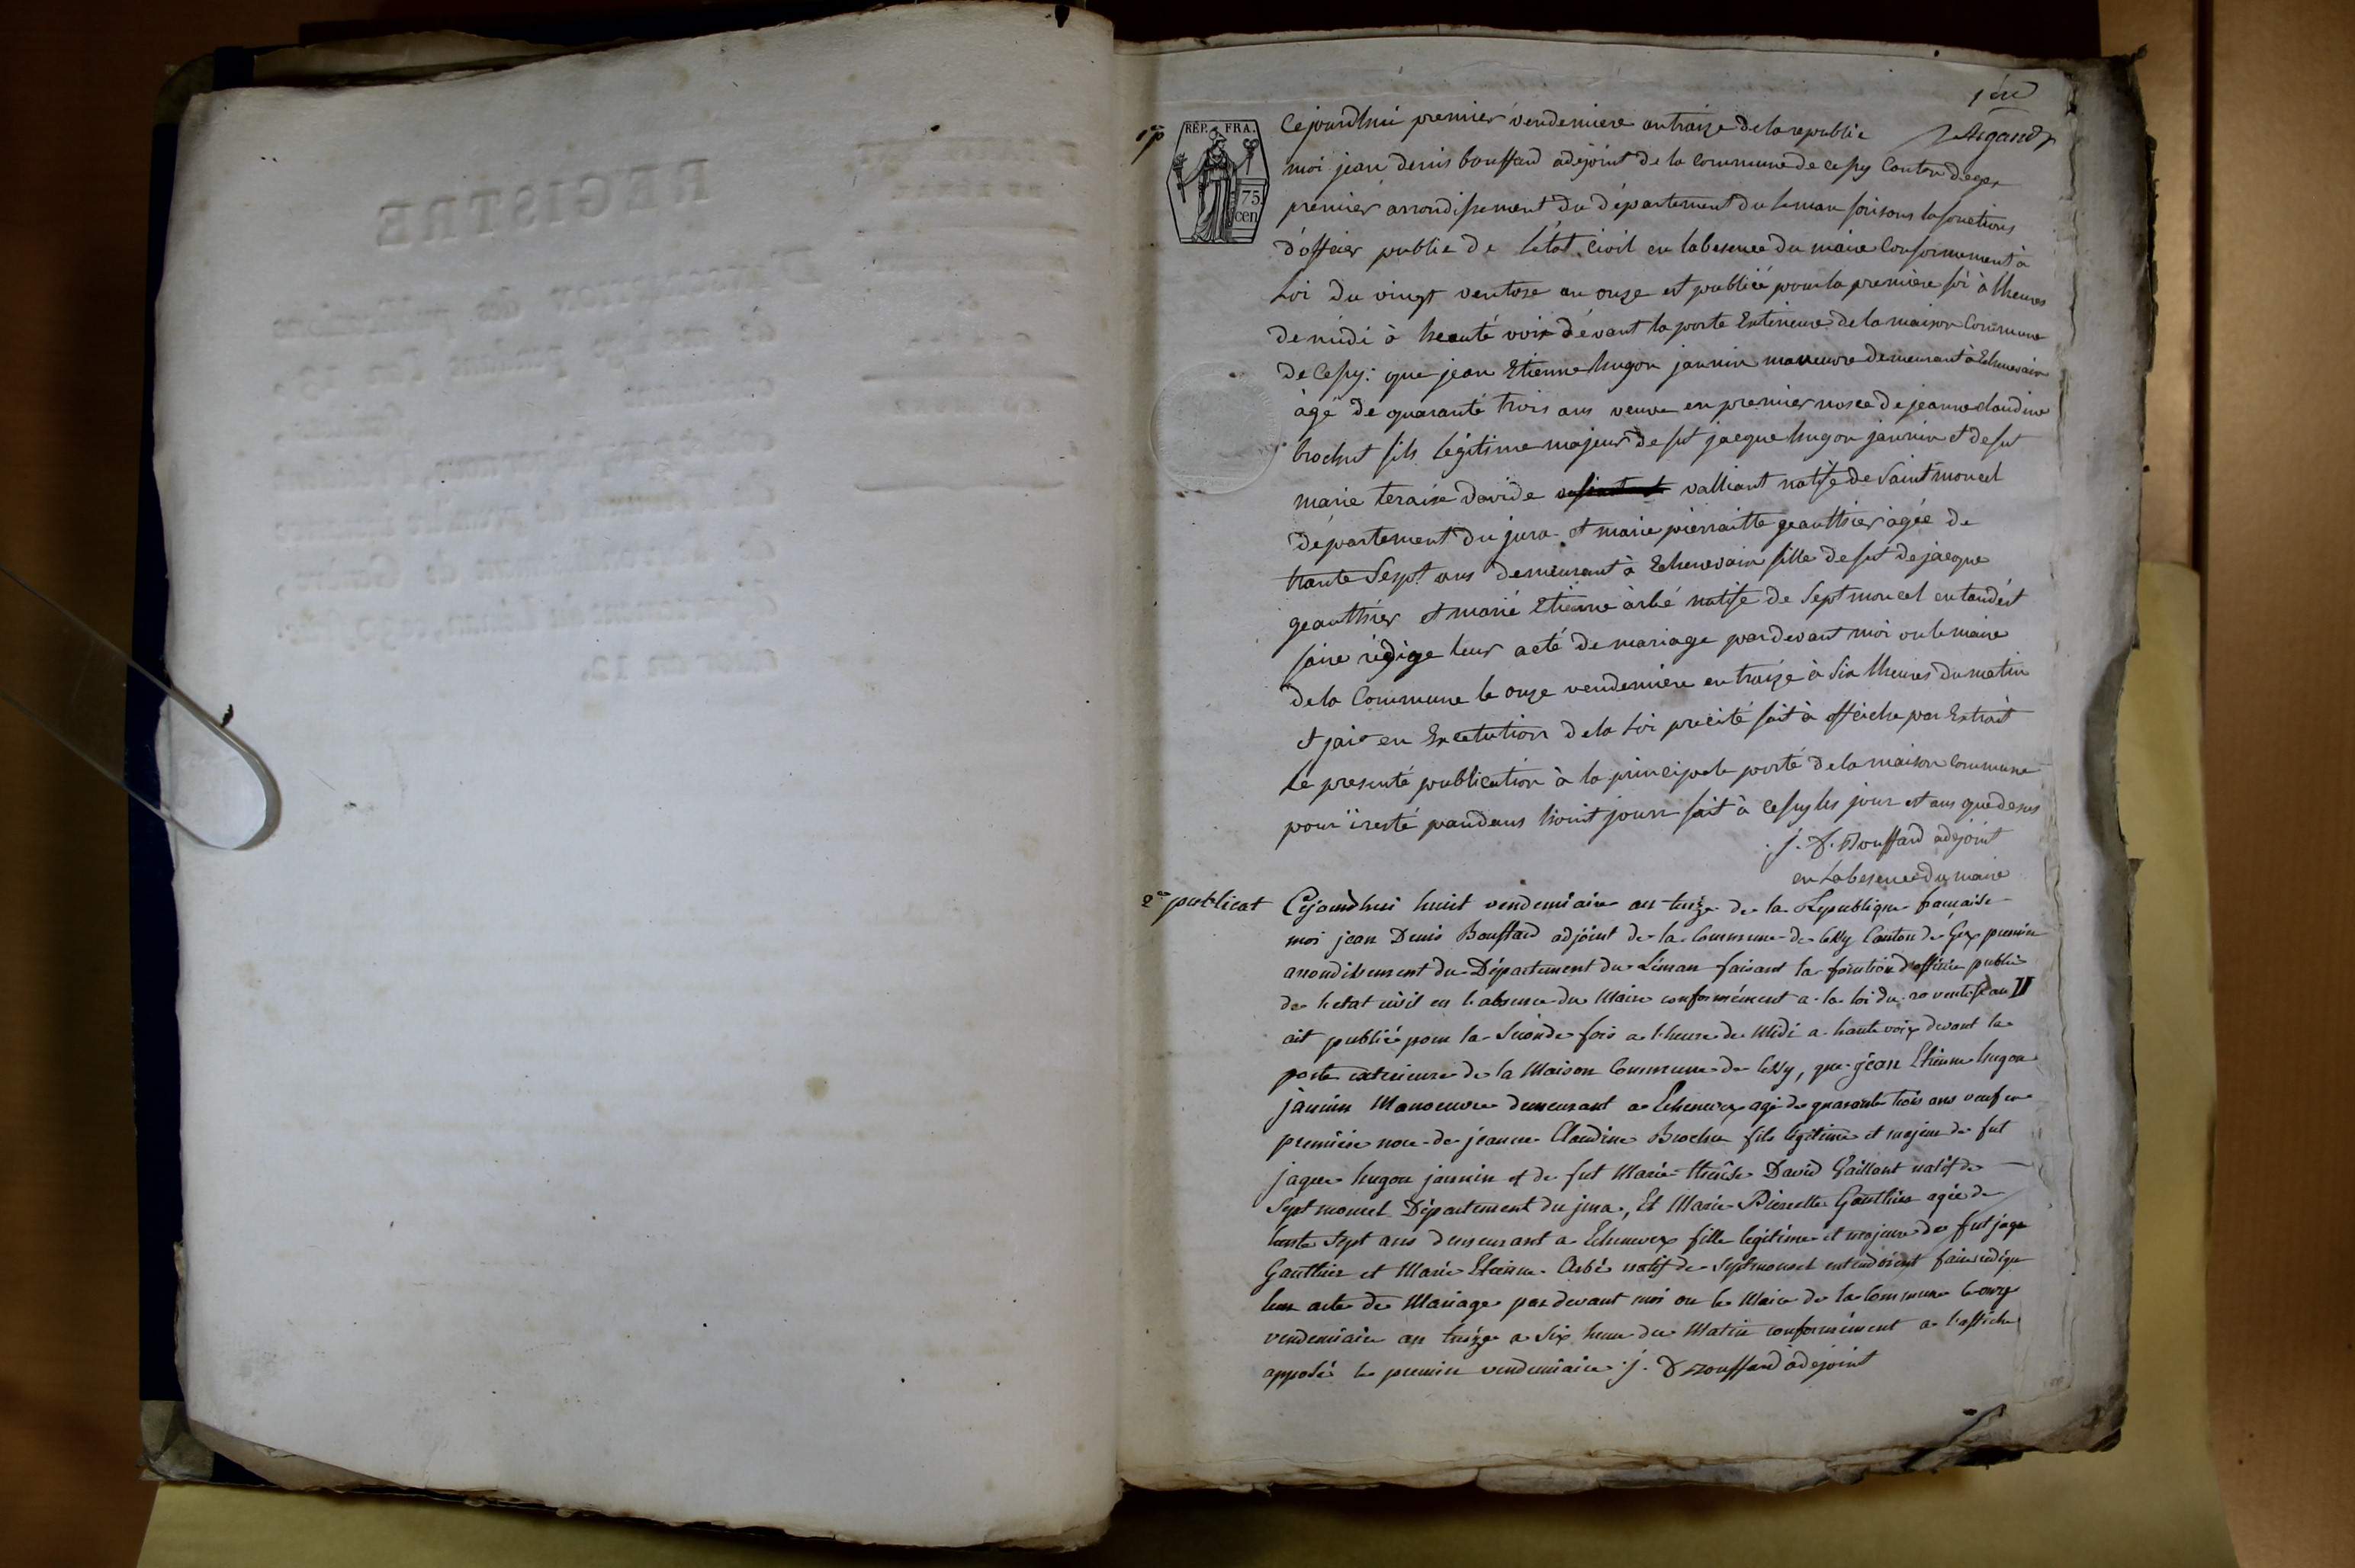 REGISTRE
1er
Argand
1e p
RÉP. FRA.
75
cen
Cejourdhui premier vendemiere an traize de la republic
moi jean denis bouffard adejoint de la Commune de Cessy Canton de gex
premier arrondissement du département du leman faisons la fonctions
d'officier public de l'état civil en labesence du maire Conformement à
Loi du vingt ventose an onze et publiée pour la première foi à lheures
de midi à heauté voix dévant la porte Exterieure de la maison Commune
de Cessy: que jean Etienne hugon jannin maneuvre demeurant à Echenevaix
âgé de quaranté trois ans veuve en premier nosce de jeanne claudine
brochut fils légitime majeur de fut jacque hugon jannin et de fut
marie teraise davide valliant natife de Saint moucel
département du jura et marie pierraitte geauthier âgée de
trante Sespt ans demeurant à Echenevaix fille de fut de jacque
geauthier et marié Etienne arbé natife de Septmoucel entandest
faire rédige leur acté de mariage pardevant moi ou le maire
de la Commune le onze vendemiere en traize à Six lheures du matin
et jai en Exectution de la Loi precité fait à affeiche par Extrait
le presenté publication à la principale porté de la maison Commune
pour i resté pandans houit jours fait à Cessy les jour et ans que desus
J. D. Bouffard adejoint
en Labesence du maire
2e publicat
Cejourdhui huit vendemiaire an treize de la Republique française
moi jean Denis Bouffard adjoint de la Commune de Cessy Canton de Gex premier
arrondissement du Département du Léman faisant la fonction d'officier public
de l'etat civil en l'absence du Maire conformément a la loi du 20 ventose an II
ait publié pour la seconde fois a l'heure de Midi a haute voix devant la
porte exterieure de la Maison Commune de Cessy, que jean Etienne hugon
jannin Manoeuvre demeurant a Echenevex agé de quarante trois ans veuf en
premiere noce de jeanne Claudine Brochu fils légitime et majeur de fut
jaque hugon jannin et de fut Marie thérèse David Vaillant natif de
Septmoucel Département du jura, Et Marie Pierrette Gauthier agée de
trente sept ans demeurant a Echenevex fille légitime et majeure de fut jaque
Gauthier et Marie Etienne Arbé natif de Septmoucel entendoient faire rédiger
leur acte de Mariage par devant moi ou le Maire de la Commune le onze
vendemiaire an treize a six heure du Matin conformément a l'affiche
apposée le premier vendemiaire J. D Bouffard adejoint